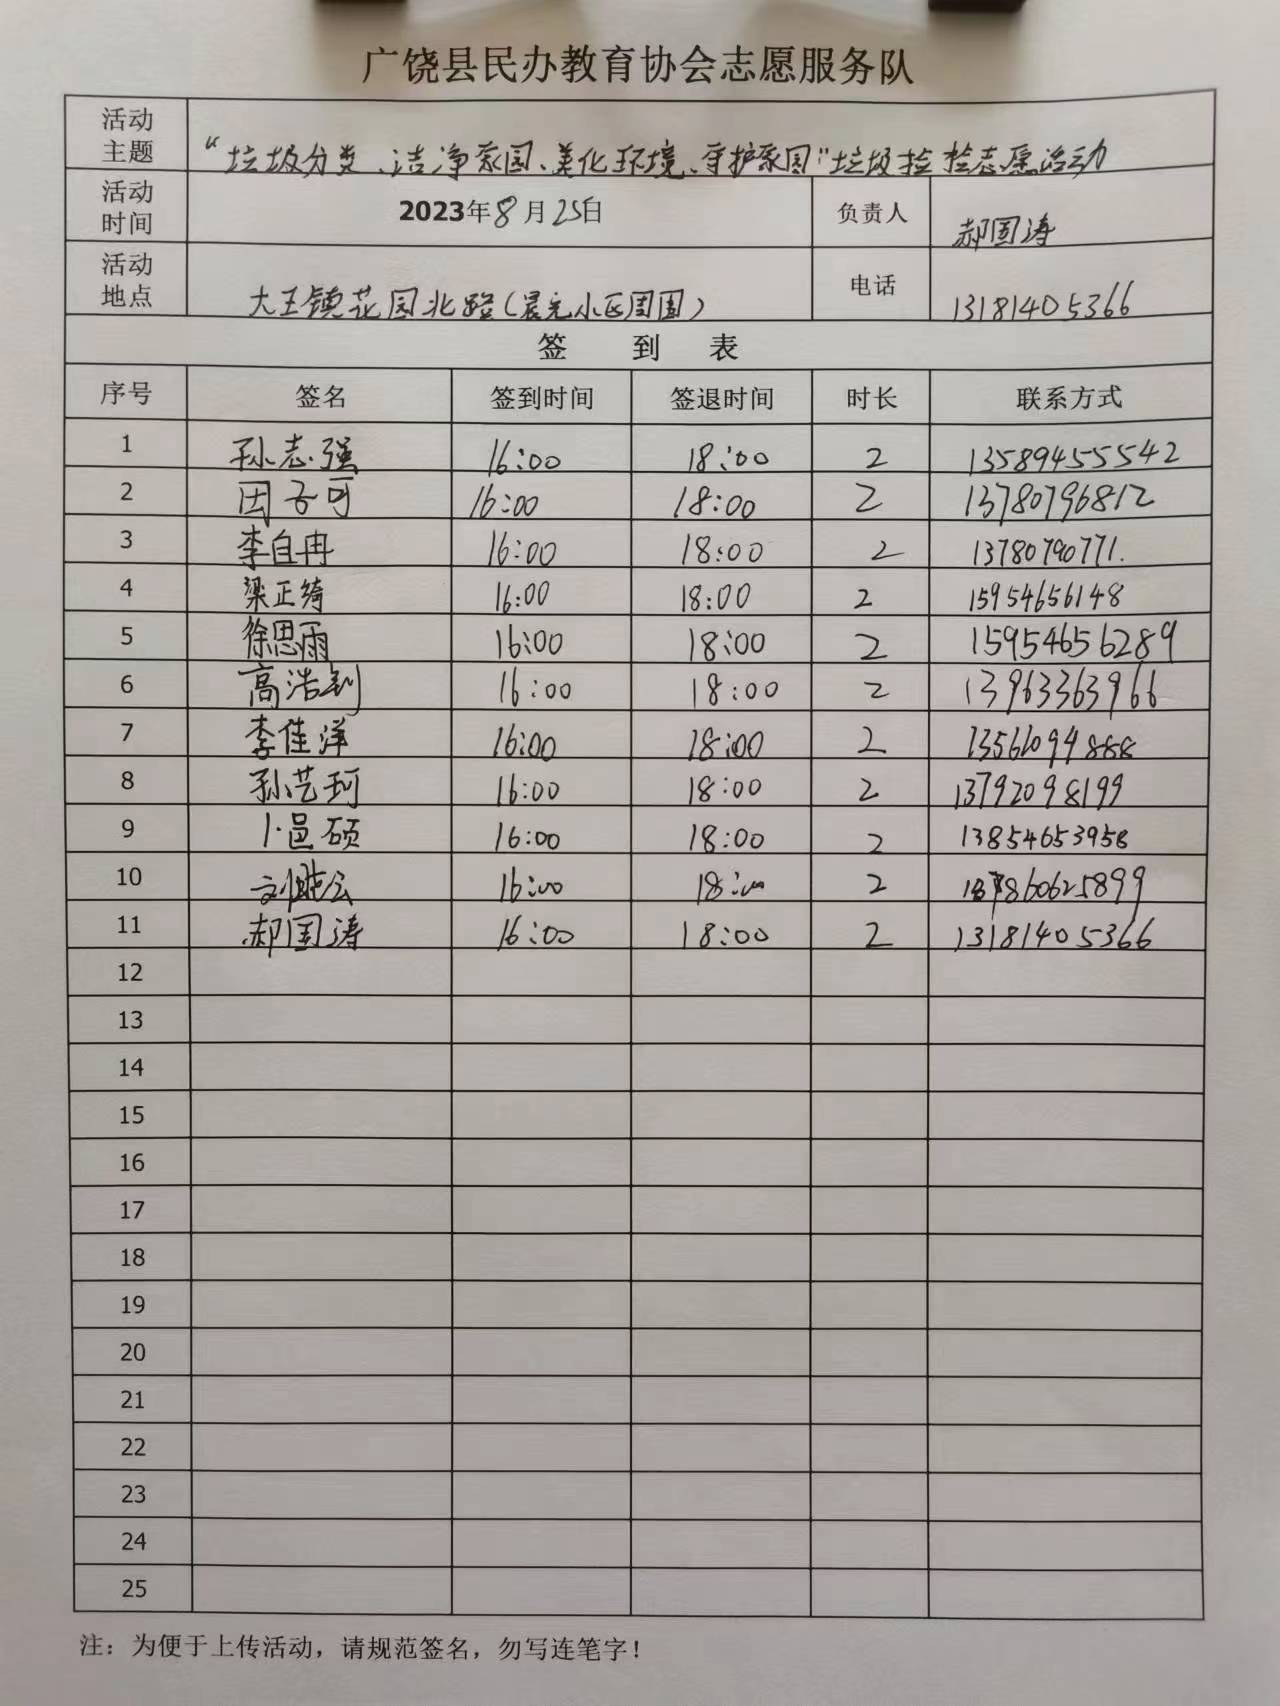 广饶县民办教育协会志愿服务队
活动主题 “垃圾分类、洁净家园、美化环境、守护家园”垃圾捡捡志愿活动
活动时间 2023年8月25日 负责人 郝国涛
活动地点 大王镇花园北路(晨光小区周围) 电话 13181405366
签 到 表
序号 签名 签到时间 签退时间 时长 联系方式
1 孙志强 16:00 18:00 2 13589455542
2 因子可 16:00 18:00 2 13780796812
3 李自冉 16:00 18:00 2 13780790771.
4 梁正绮 16:00 18:00 2 15954656148
5 徐思雨 16:00 18:00 2 15954656289
6 高浩钊 16:00 18:00 2 13963363966
7 李佳洋 16:00 18:00 2 13561094888
8 孙艺珂 16:00 18:00 2 13792098199
9 卜邑硕 16:00 18:00 2 13854653958
10 16:00 18:00 2
11 郝国涛 16:00 18:00 2 13181405366
12
13
14
15
16
17
18
19
20
21
22
23
24
25
注：为便于上传活动，请规范签名，勿写连笔字！